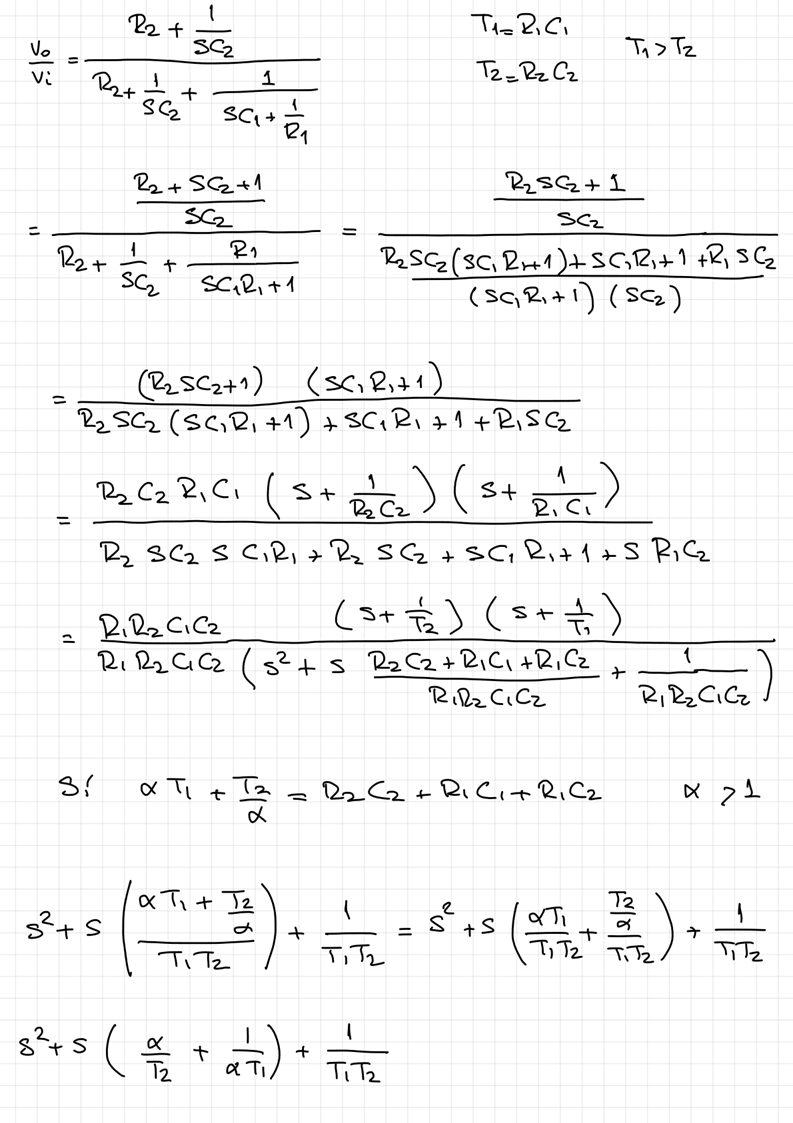 Vo/Vi = (R2 + 1/SC2) / (R2 + 1/SC2 + 1/(SC1 + 1/R1))
T1 = R1C1
T2 = R2C2
T1 > T2
= ((R2 + SC2 + 1)/SC2) / (R2 + 1/SC2 + R1/(SC1R1 + 1)) = ((R2SC2 + 1)/SC2) / ((R2SC2(SC1R1+1) + SC1R1 + 1 + R1SC2)/((SC1R1+1)(SC2)))
= (R2SC2+1) (SC1R1+1) / (R2SC2(SC1R1+1) + SC1R1 + 1 + R1SC2)
= R2C2R1C1 (S + 1/(R2C2)) (S + 1/(R1C1)) / (R2 SC2 S C1R1 + R2 SC2 + SC1R1 + 1 + S R1C2)
= R1R2C1C2 (S + 1/T2) (S + 1/T1) / (R1R2C1C2 (S² + S (R2C2 + R1C1 + R1C2)/(R1R2C1C2) + 1/(R1R2C1C2)))
Si αT1 + T2/α = R2C2 + R1C1 + R1C2 α > 1
S² + S ((αT1 + T2/α)/(T1T2)) + 1/(T1T2) = S² + S (αT1/(T1T2) + (T2/α)/(T1T2)) + 1/(T1T2)
S² + S (α/T2 + 1/(αT1)) + 1/(T1T2)